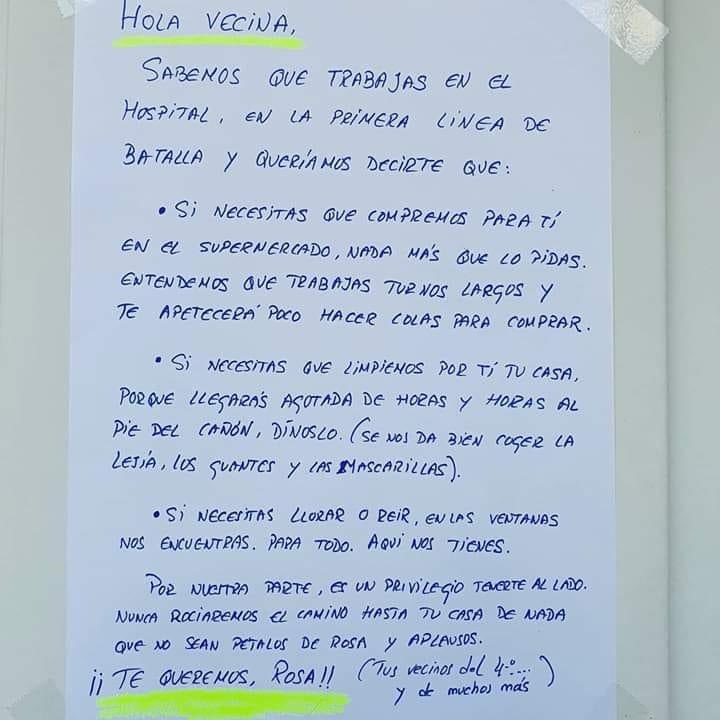 HOLA VECINA,
SABEMOS QUE TRABAJAS EN EL
HOSPITAL, EN LA PRIMERA LINEA DE
BATALLA Y QUERÍAMOS DECIRTE QUE:
• Si NECESITAS QUE COMPREMOS PARA TÍ
EN EL SUPERMERCADO, NADA MÁS QUE LO PIDAS.
ENTENDEMOS QUE TRABAJAS TURNOS LARGOS Y
TE APETECERÁ POCO HACER COLAS PARA COMPRAR.
• Si NECESITAS QUE LIMPIEMOS POR TÍ TU CASA,
PORQUE LLEGARÁS AGOTADA DE HORAS Y HORAS AL
PIE DEL CAÑÓN, DÍNOSLO. (SE NOS DA BIEN COGER LA
LEJÍA, LOS GUANTES Y LAS MASCARILLAS).
• Si NECESITAS LLORAR O REIR, EN LAS VENTANAS
NOS ENCUENTRAS. PARA TODO. AQUI NOS TIENES.
POR NUESTRA PARTE, ES UN PRIVILEGIO TENERTE AL LADO.
NUNCA ROCIAREMOS EL CAMINO HASTA TU CASA DE NADA
QUE NO SEAN PETALOS DE ROSA Y APLAUSOS.
¡¡ TE QUEREMOS, ROSA!! (Tus vecinos del 4º...
y de muchos más)